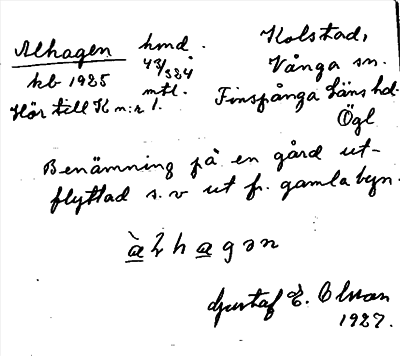 Alhagen hmd.
kb 1925 43/384 mtl.
Hör till K nr 1.
Kolstad,
Vånga sn.
Finspånga läns hd.
Ögl
Benämning på en gård ut-
flyttad s.v ut fr. gamla byn.
Gustaf E. Olsson
1927.